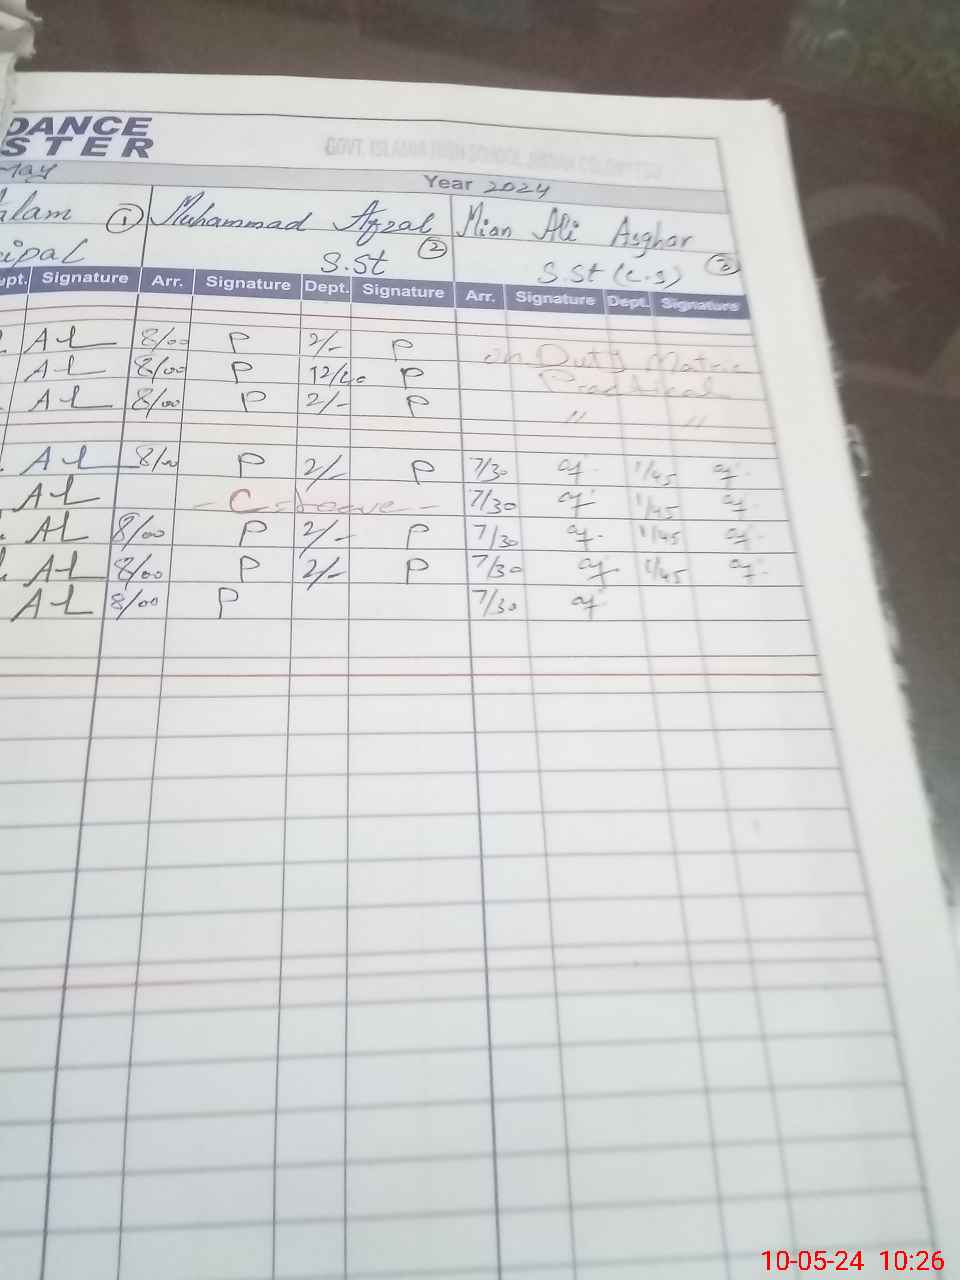 DANCE
STER
GOVT. ISLAMIA HIGH SCHOOL
May Year 2024
alam ① Muhammad Afzal Mian Ali Asghar
cipal S.St ② S.St (C.S) ③
ept. Signature Arr. Signature Dept. Signature Arr. Signature Dept. Signature
8/00 P 2/- P on Duty Matric
8/00 P 12/40 P Practical
8/00 P 2/- P " "
8/00 P 2/- P 7/30 1/45
- C. leave - 7/30 1/45
8/00 P 2/- P 7/30 1/45
8/00 P 2/- P 7/30 1/45
8/00 P 7/30
10-05-24 10:26